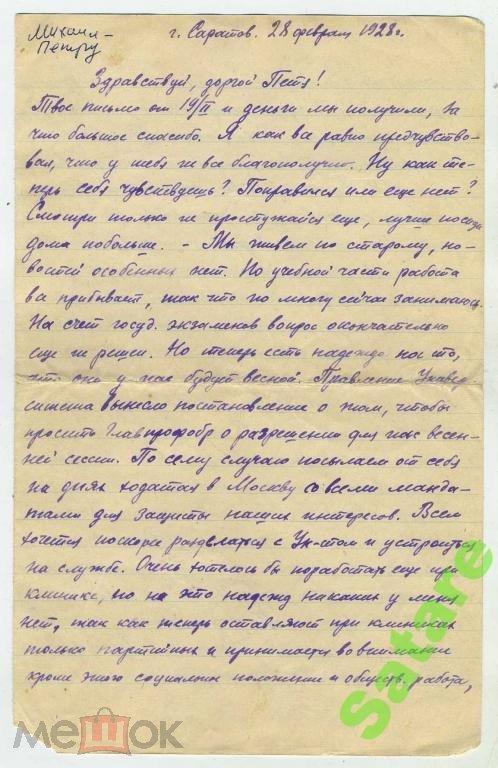 Михаил -
Петру
г. Саратов. 28 февраля 1928 г.
Здравствуй, дорогой Петя!
Твое письмо от 19/II и деньги мы получили, за
что большое спасибо. Я как раз равно предчувство-
вал, что у тебя не все благополучно. Ну как те-
перь себя чувствуешь? Поправился или еще нет?
Смотри только не простужайся еще, лучше посиди
дома побольше. - Мы живем по старому, но-
востей особенных нет. По учебной части работа
прибывает, так что по многу сейчас занимаюсь.
На счет госуд. экзаменов вопрос окончательно
еще не решен. Но теперь есть надежда на то,
что они у нас будут весной. Правление Универ
ситета вынесло постановление о том, чтобы
просить Главпрофобр о разрешении для нас весен-
ней сессии. По сему случаю посылаем от себя
на днях ходатая в Москву со всеми манда-
тами для защиты наших интересов. Всем
хочется поскорее разделаться с Ун-том и устроиться
на службе. Очень хотелось бы поработать еще при
клинике, но на это надежд никаких у меня
нет, так как теперь оставляют при клиниках
только партийных и принимается во внимание
кроме этого социальное положение и обществ. работа,
Satare
мешок